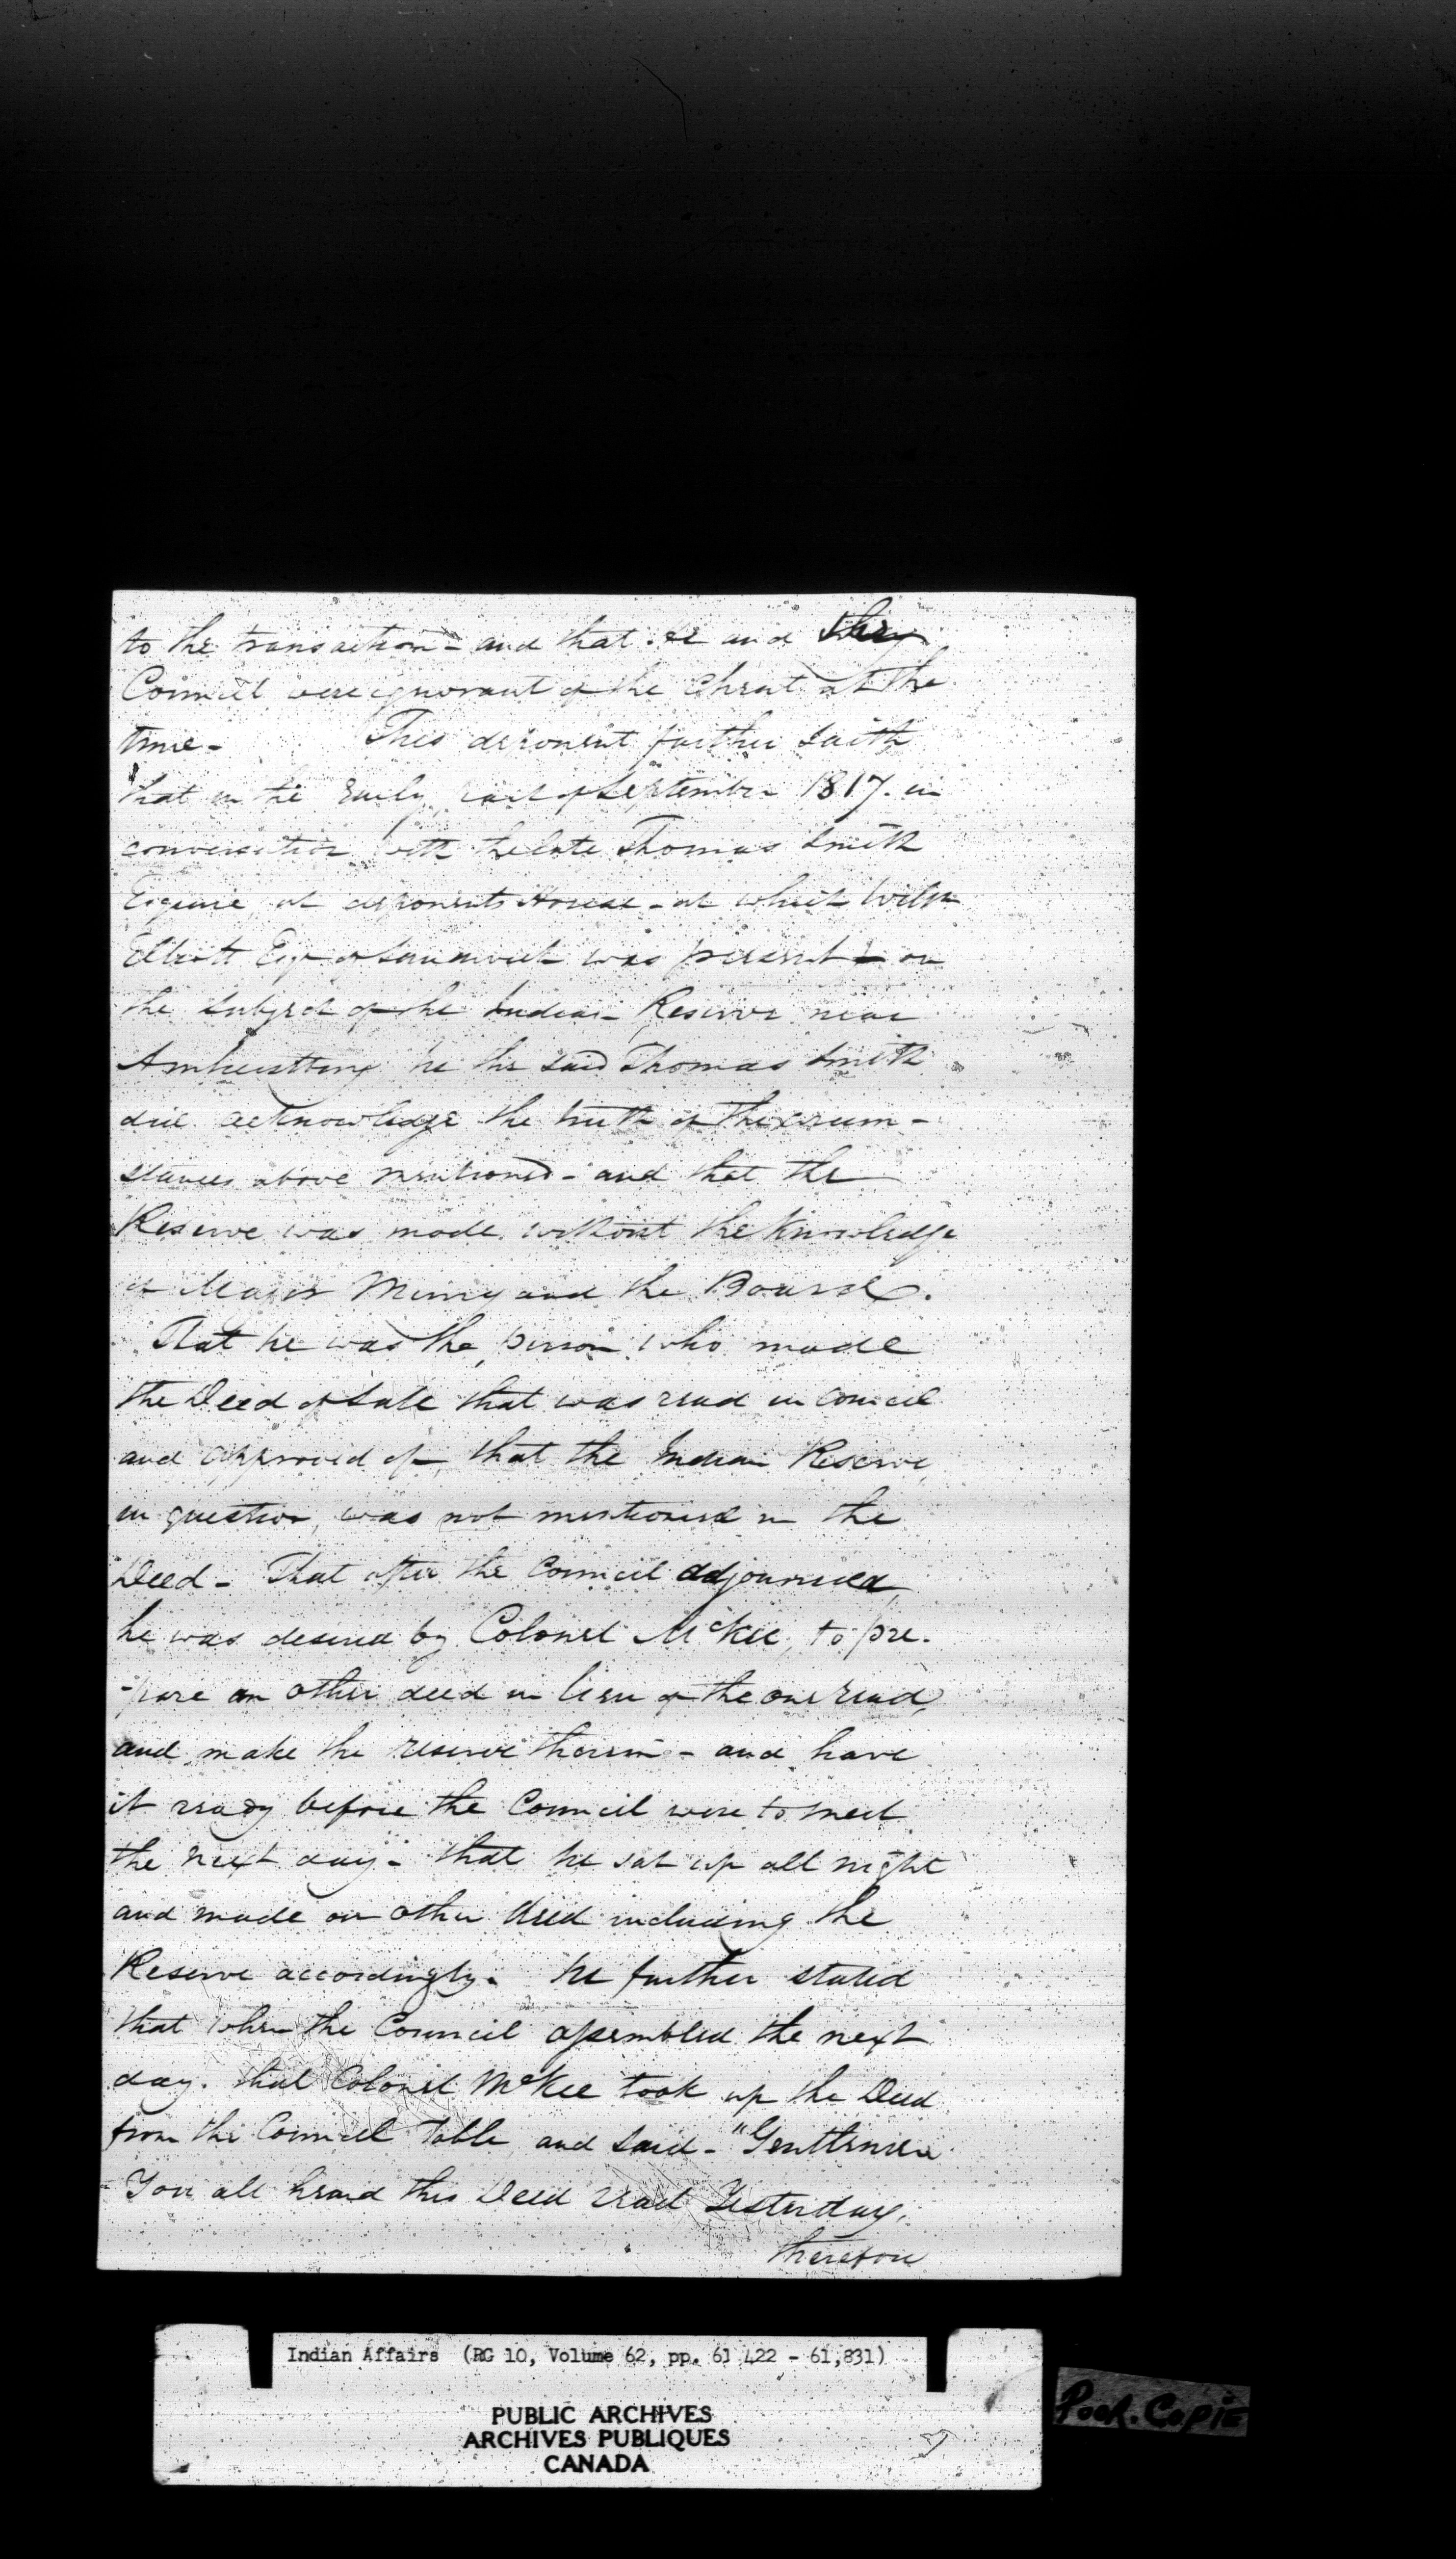 to the transaction - and that he and they
Council were ignorant of the cheat at the
time - This deponent further saith
that in the Early part of September 1817. in
conversation with the late Thomas Smith
Esquire at deponents House - at which Willm
Elliott Esqr of Sandwich was present - on
the Subject of the Indian Reserve near
Amherstburg he the said Thomas Smith
did acknowledge the truth of the circum-
stances above mentioned - and that the
Reserve was made without the Knowledge
of Major Murray and the Board.
That he was the person who made
the Deed of Sale that was read in Council
and approved of, that the Indian Reserve,
in question, was not mentioned in the
Deed - That after the Council adjourned,
he was desired by Colonel McKee, to pre-
-pare an other deed in lieu of the one read,
and make the reserve therein - and have
it ready before the Council were to meet
the next day - that he sat up all night
and made an other deed including the
Reserve accordingly. he further stated
that when the Council assembled the next
day. that Colonel McKee took up the Deed
from the Council Table and said - "Gentlemen
You all heard this Deed read Yesterday,
therefore
Indian Affairs (RG 10, Volume 62, pp. 61 422 - 61,831)
PUBLIC ARCHIVES
ARCHIVES PUBLIQUES
CANADA
Poor. Copie